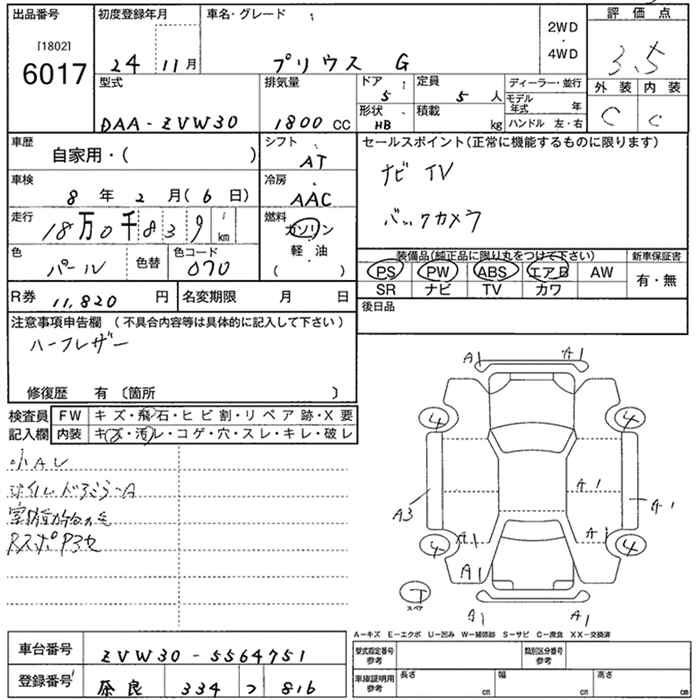 出品番号 初度登録年月 車名・グレード 評価点
[1802] 6017
24 11月 プリウス G 2WD ・ 4WD 3.5
外装 内装
C C
型式 排気量 ドア 定員 ディーラー・並行
5 5 人 モデル年式 年
DAA-ZVW30 1800 CC 形状 HB 積載 kg ハンドル 左・右
車歴 自家用・( ) シフト AT
セールスポイント(正常に機能するものに限ります)
ナビ TV
バックカメラ
車検 8 年 2 月(6 日) 冷房 AAC
走行 18万0千839 km 燃料 ガソリン 軽・油 ( )
色 パール 色替 色コード 070
装備品(純正品に限り丸をつけて下さい) 新車保証書
PS PW ABS エアB AW 有・無
SR ナビ TV カワ
R券 11,820 円 名変期限 月 日
後日品
注意事項申告欄 (不具合内容等は具体的に記入して下さい)
ハーフレザー
修復歴 有 〔箇所 〕
検査員記入欄 FW キズ・飛石・ヒビ割・リペア跡・X要
内装 キズ・汚レ・コゲ・穴・スレ・キレ・破レ
小AU
A1 A1
4 4
A1
A3 A1
A1 A1
4 4
A1
T スペア
A1 A1
A-キズ E-エクボ U-凹み W-補修跡 S-サビ C-腐食 XX-交換済
車台番号 ZVW30-5564751
登録番号 奈良 334 つ 816
型式指定番号 参考 類別区分番号 参考
車庫証明用 参考 長さ cm 幅 cm 高さ cm